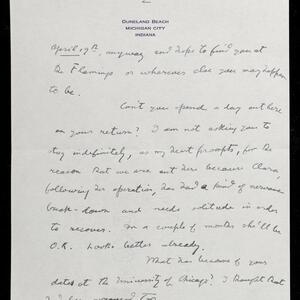 2
Duneland Beach
Michigan City
Indiana
April 19th, anyway and hope to find you at
the Flamingo or wherever else you may happen
to be.
Can't you spend a day out here
on your return? I am not asking you to
stay indefinitely, as my heart prompts, for the
reason that we are out here because Clara,
following her operation, has had a kind of nervous
break-down and needs solitude in order
to recover. In a couple of months she'll be
O.K. Looks better already.
What has become of your
dates at the University of Chicago? I thought that